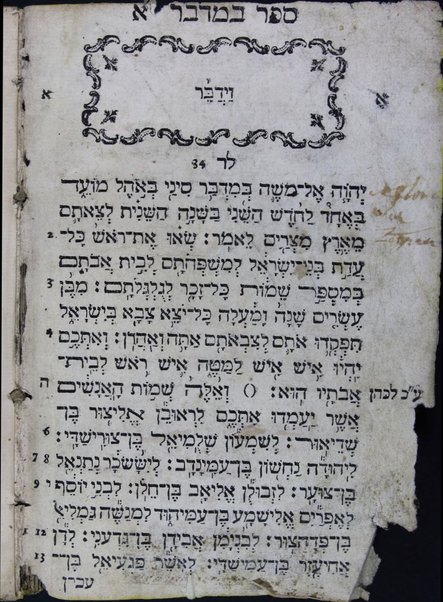 ספר במדבר א
א
וַיְדַבֵּ֨ר
א
לד 34
יְהוָ֧ה אֶל־מֹשֶׁ֛ה בְּמִדְבַּ֥ר סִינַ֖י בְּאֹ֣הֶל מוֹעֵ֑ד
בְּאֶחָד֩ לַחֹ֨דֶשׁ הַשֵּׁנִ֜י בַּשָּׁנָ֣ה הַשֵּׁנִ֗ית לְצֵאתָ֛ם
2 מֵאֶ֥רֶץ מִצְרַ֖יִם לֵאמֹֽר׃ שְׂא֗וּ אֶת־רֹאשׁ֙ כָּל־
עֲדַ֣ת בְּנֵֽי־יִשְׂרָאֵ֔ל לְמִשְׁפְּחֹתָ֖ם לְבֵ֣ית אֲבֹתָ֑ם
3 בְּמִסְפַּ֣ר שֵׁמ֔וֹת כָּל־זָכָ֖ר לְגֻלְגְּלֹתָֽם׃ מִבֶּ֨ן
עֶשְׂרִ֤ים שָׁנָה֙ וָמַ֔עְלָה כָּל־יֹצֵ֥א צָבָ֖א בְּיִשְׂרָאֵ֑ל
4 תִּפְקְד֥וּ אֹתָ֛ם לְצִבְאֹתָ֖ם אַתָּ֥ה וְאַהֲרֹֽן׃ וְאִתְּכֶ֣ם
יִהְי֔וּ אִ֥ישׁ אִ֖ישׁ לַמַּטֶּ֑ה אִ֛ישׁ רֹ֥אשׁ לְבֵית־
ה אֲבֹתָ֖יו הֽוּא׃ ○ וְאֵ֙לֶּה֙ שְׁמ֣וֹת הָֽאֲנָשִׁ֔ים
ע״כ לכהן
אֲשֶׁ֥ר יַֽעַמְד֖וּ אִתְּכֶ֑ם לִרְאוּבֵ֕ן אֱלִיצ֖וּר בֶּן־
6 שְׁדֵיאֽוּר׃ לְשִׁמְע֕וֹן שְׁלֻמִיאֵ֖ל בֶּן־צוּרִֽישַׁדָּֽי׃
7 8 לִֽיהוּדָ֕ה נַחְשׁ֖וֹן בֶּן־עַמִּינָדָֽב׃ לְיִ֨שָּׂשכָ֔ר נְתַנְאֵ֖ל
9 י בֶּן־צוּעָֽר׃ לִזְבוּלֻ֕ן אֱלִיאָ֖ב בֶּן־חֵלֹֽן׃ לִבְנֵ֣י יוֹסֵ֔ף
לְאֶפְרַ֕יִם אֱלִישָׁמָ֖ע בֶּן־עַמִּיה֑וּד לִמְנַשֶּׁ֕ה גַּמְלִיאֵ֖ל
12 בֶּן־פְּדָהצֽוּר׃ לְבִ֨נְיָמִ֔ן אֲבִידָ֖ן בֶּן־גִּדְעֹנִֽי׃ לְדָ֕ן
13 אֲחִיעֶ֖זֶר בֶּן־עַמִּֽישַׁדָּֽי׃ לְאָשֵׁ֕ר פַּגְעִיאֵ֖ל בֶּן־
עכרן